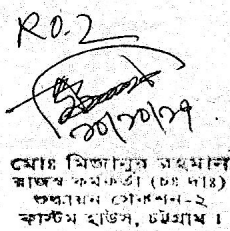 RO-2
২০/১০/২১
মোঃ মিজানুর রহমান
রাজস্ব কর্মকর্তা (চঃ দাঃ)
শুল্কায়ন সেকশন-২
কাস্টম হাউস, চট্টগ্রাম।